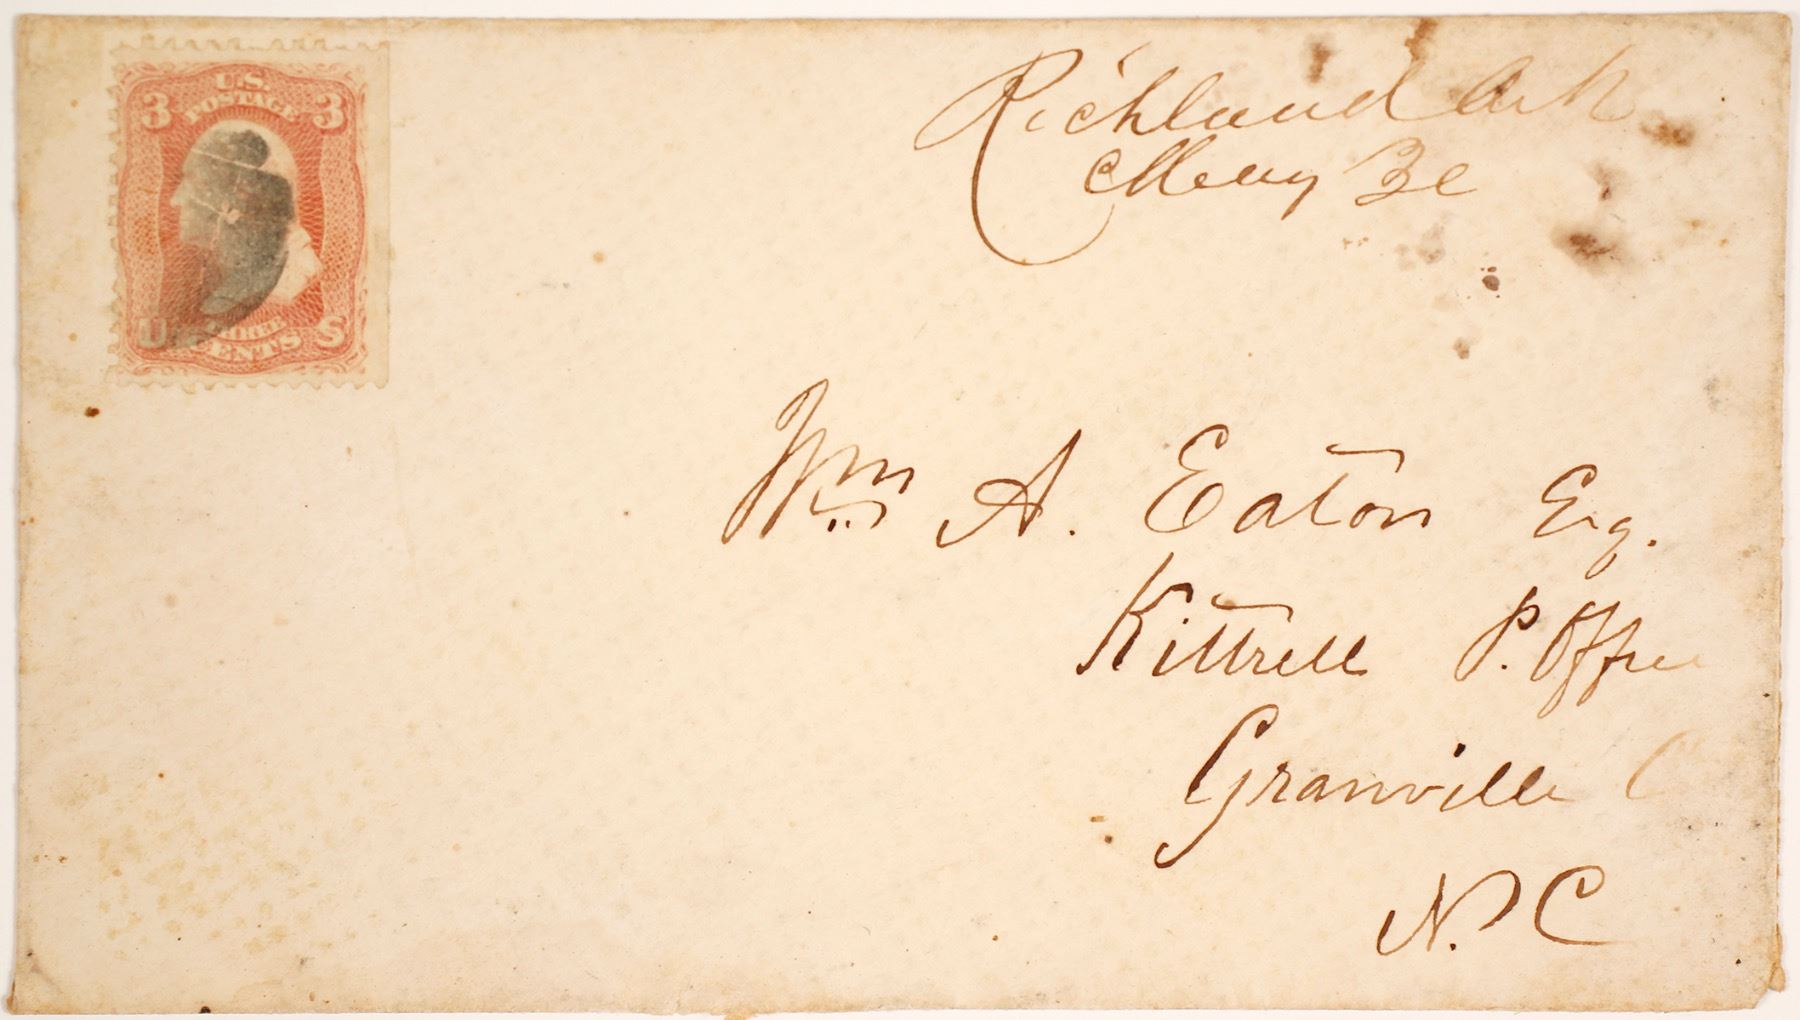 U.S.
POSTAGE
3 3
U S
THREE
CENTS
Richland Ark
Wm A. Eaton Esq.
Kittrell P. Office
Granville C
N. C